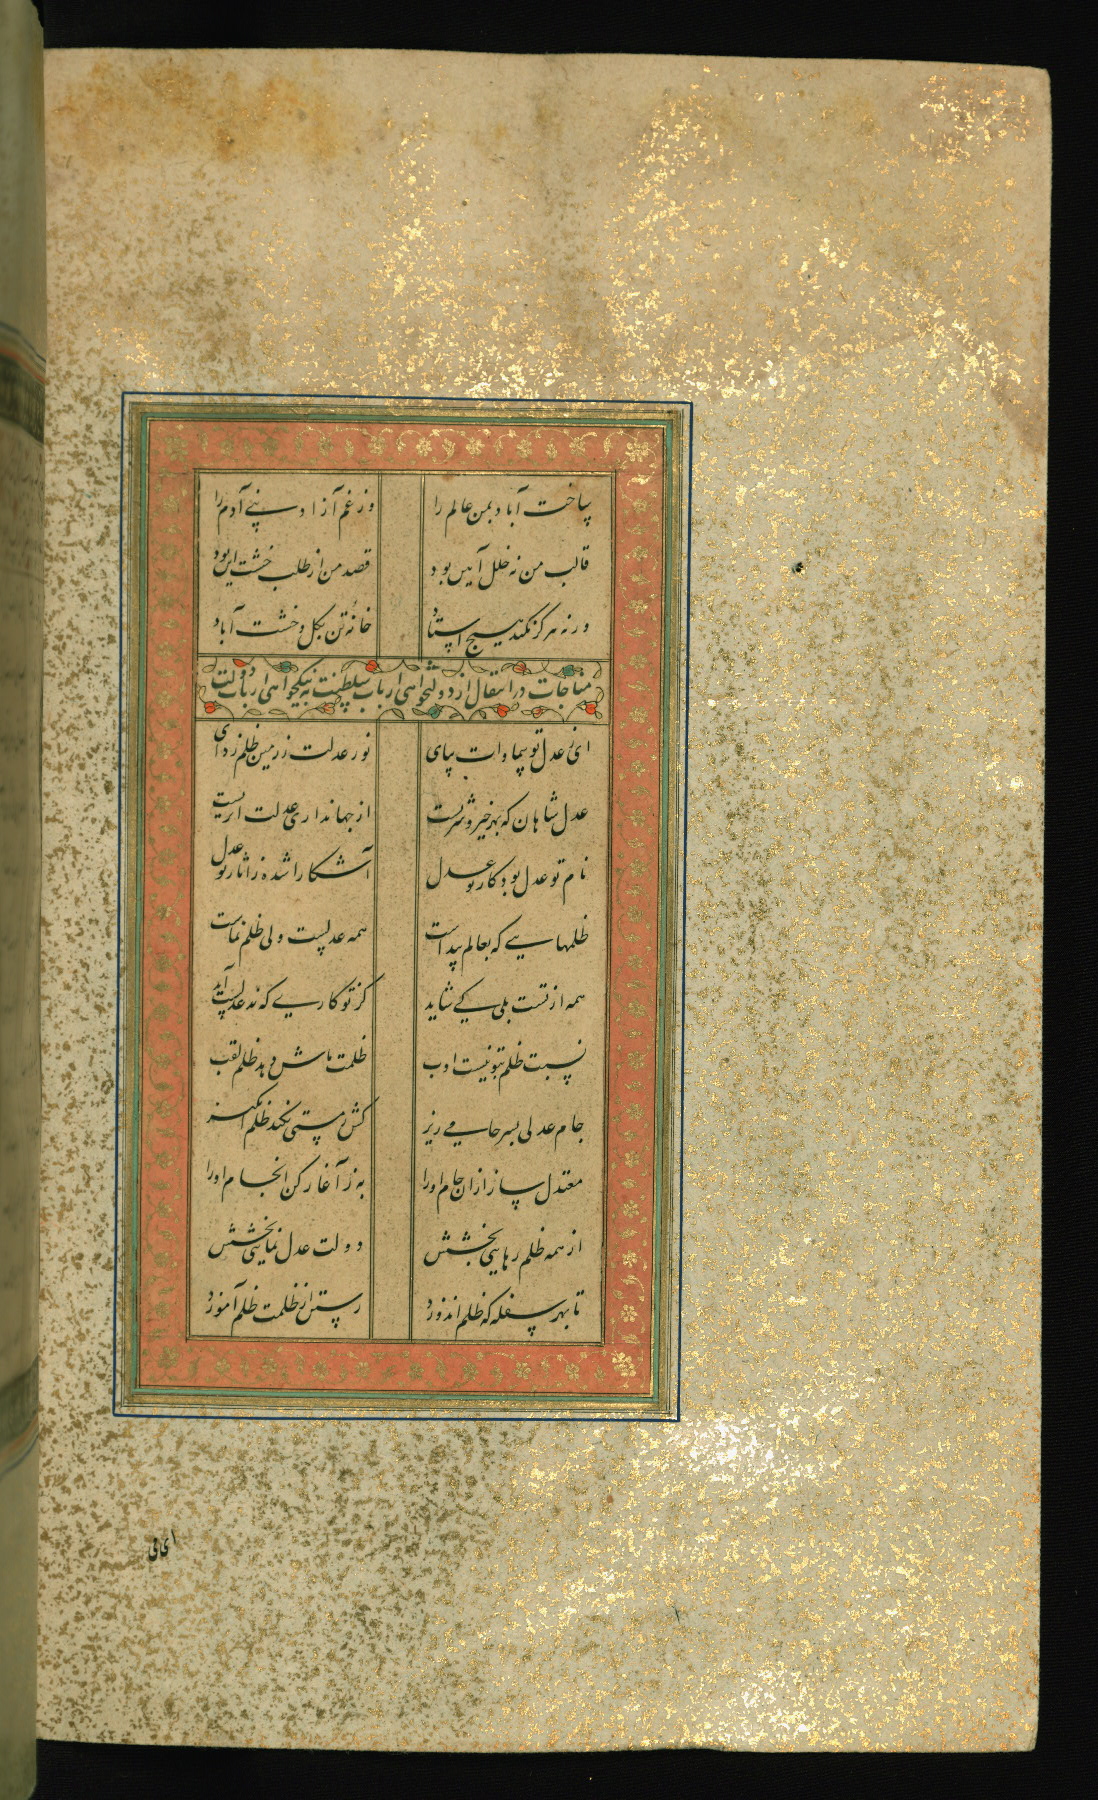 ساخت آباد بمن عالم را وز غم آزاد بنی آدم را
قالب من نه خلل آیین بود قصد من از طلب خشت این بود
ورنه هرگز نکند هیچ استاد خانه تن بگل و خشت آباد
مناجات در انتقال از دولتخواهی ارباب سلطنت به نیکخواهی ارباب دولت
ای ز عدل تو سماوات بپای نور عدلت ز زمین ظلم زدای
عدل شاهان که بهر خیر و شریست از جهانداری عدلت اثریست
نام تو عدل بود کار تو عدل آشکارا شده ز آثار تو عدل
ظلمهایی که بعالم پیداست همه عدلیست ولی ظلم نماست
همه از تست بلی کی شاید کز تو کاری که نه عدلست آید
نسبت ظلم بتو نیست ادب ظلمت ماش دهد ظلم لقب
جام عدلی بسر جامی ریز کش ز مستی نکند ظلم انگیز
معتدل ساز از آن جام او را به ز آغاز کن انجام او را
از همه ظلم رهایی بخشش دولت عدل نمایی بخشش
تا بهر سفله که ظلم اندوزد رستن از ظلمت ظلم آموزد
ای فی